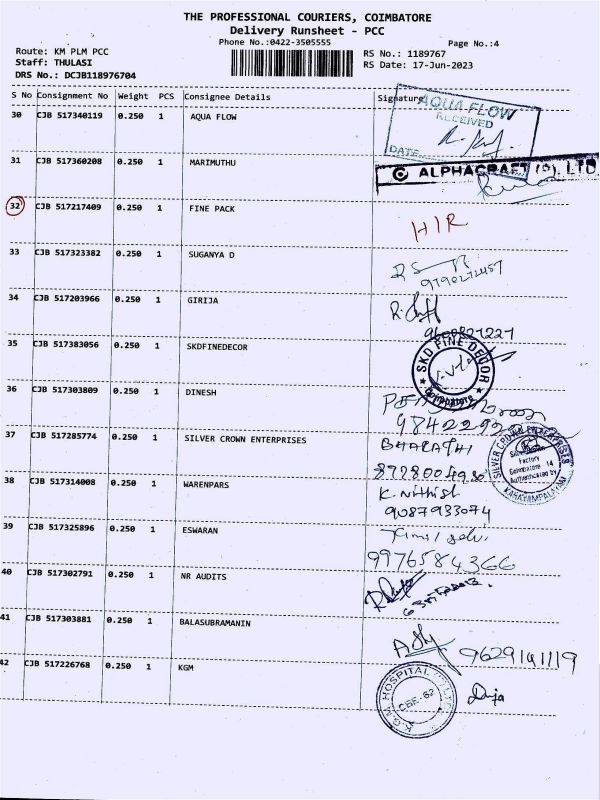 THE PROFESSIONAL COURIERS, COIMBATORE
Delivery Runsheet - PCC
Phone No.:0422-3505555
Page No.:4
Route: KM PLM PCC
RS No.: 1189767
Staff: THULASI
RS Date: 17-Jun-2023
DRS No.: DCJB118976704
S No Consignment No Weight PCS Consignee Details Signature
30 CJB 517340119 0.250 1 AQUA FLOW
AQUA FLOW
RECEIVED
DATE
31 CJB 517360208 0.250 1 MARIMUTHU
ALPHACRAFT (P). LTD
32 CJB 517217409 0.250 1 FINE PACK
33 CJB 517323382 0.250 1 SUGANYA D
34 CJB 517203966 0.250 1 GIRIJA
35 CJB 517383056 0.250 1 SKDFINEDECOR
SKD FINE DECOR
Coimbatore
36 CJB 517303809 0.250 1 DINESH
37 CJB 517285774 0.250 1 SILVER CROWN ENTERPRISES
BHARATHI
SILVER CROWN ENTERPRISES
Factory
Coimbatore 14
Authenticated by
38 CJB 517314008 0.250 1 WARENPARS
K. Nithish
9087933074
39 CJB 517325896 0.250 1 ESWARAN
9976584366
40 CJB 517302791 0.250 1 NR AUDITS
41 CJB 517303881 0.250 1 BALASUBRAMANIN
9629141119
42 CJB 517226768 0.250 1 KGM
K.G.M HOSPITAL
CBE-62